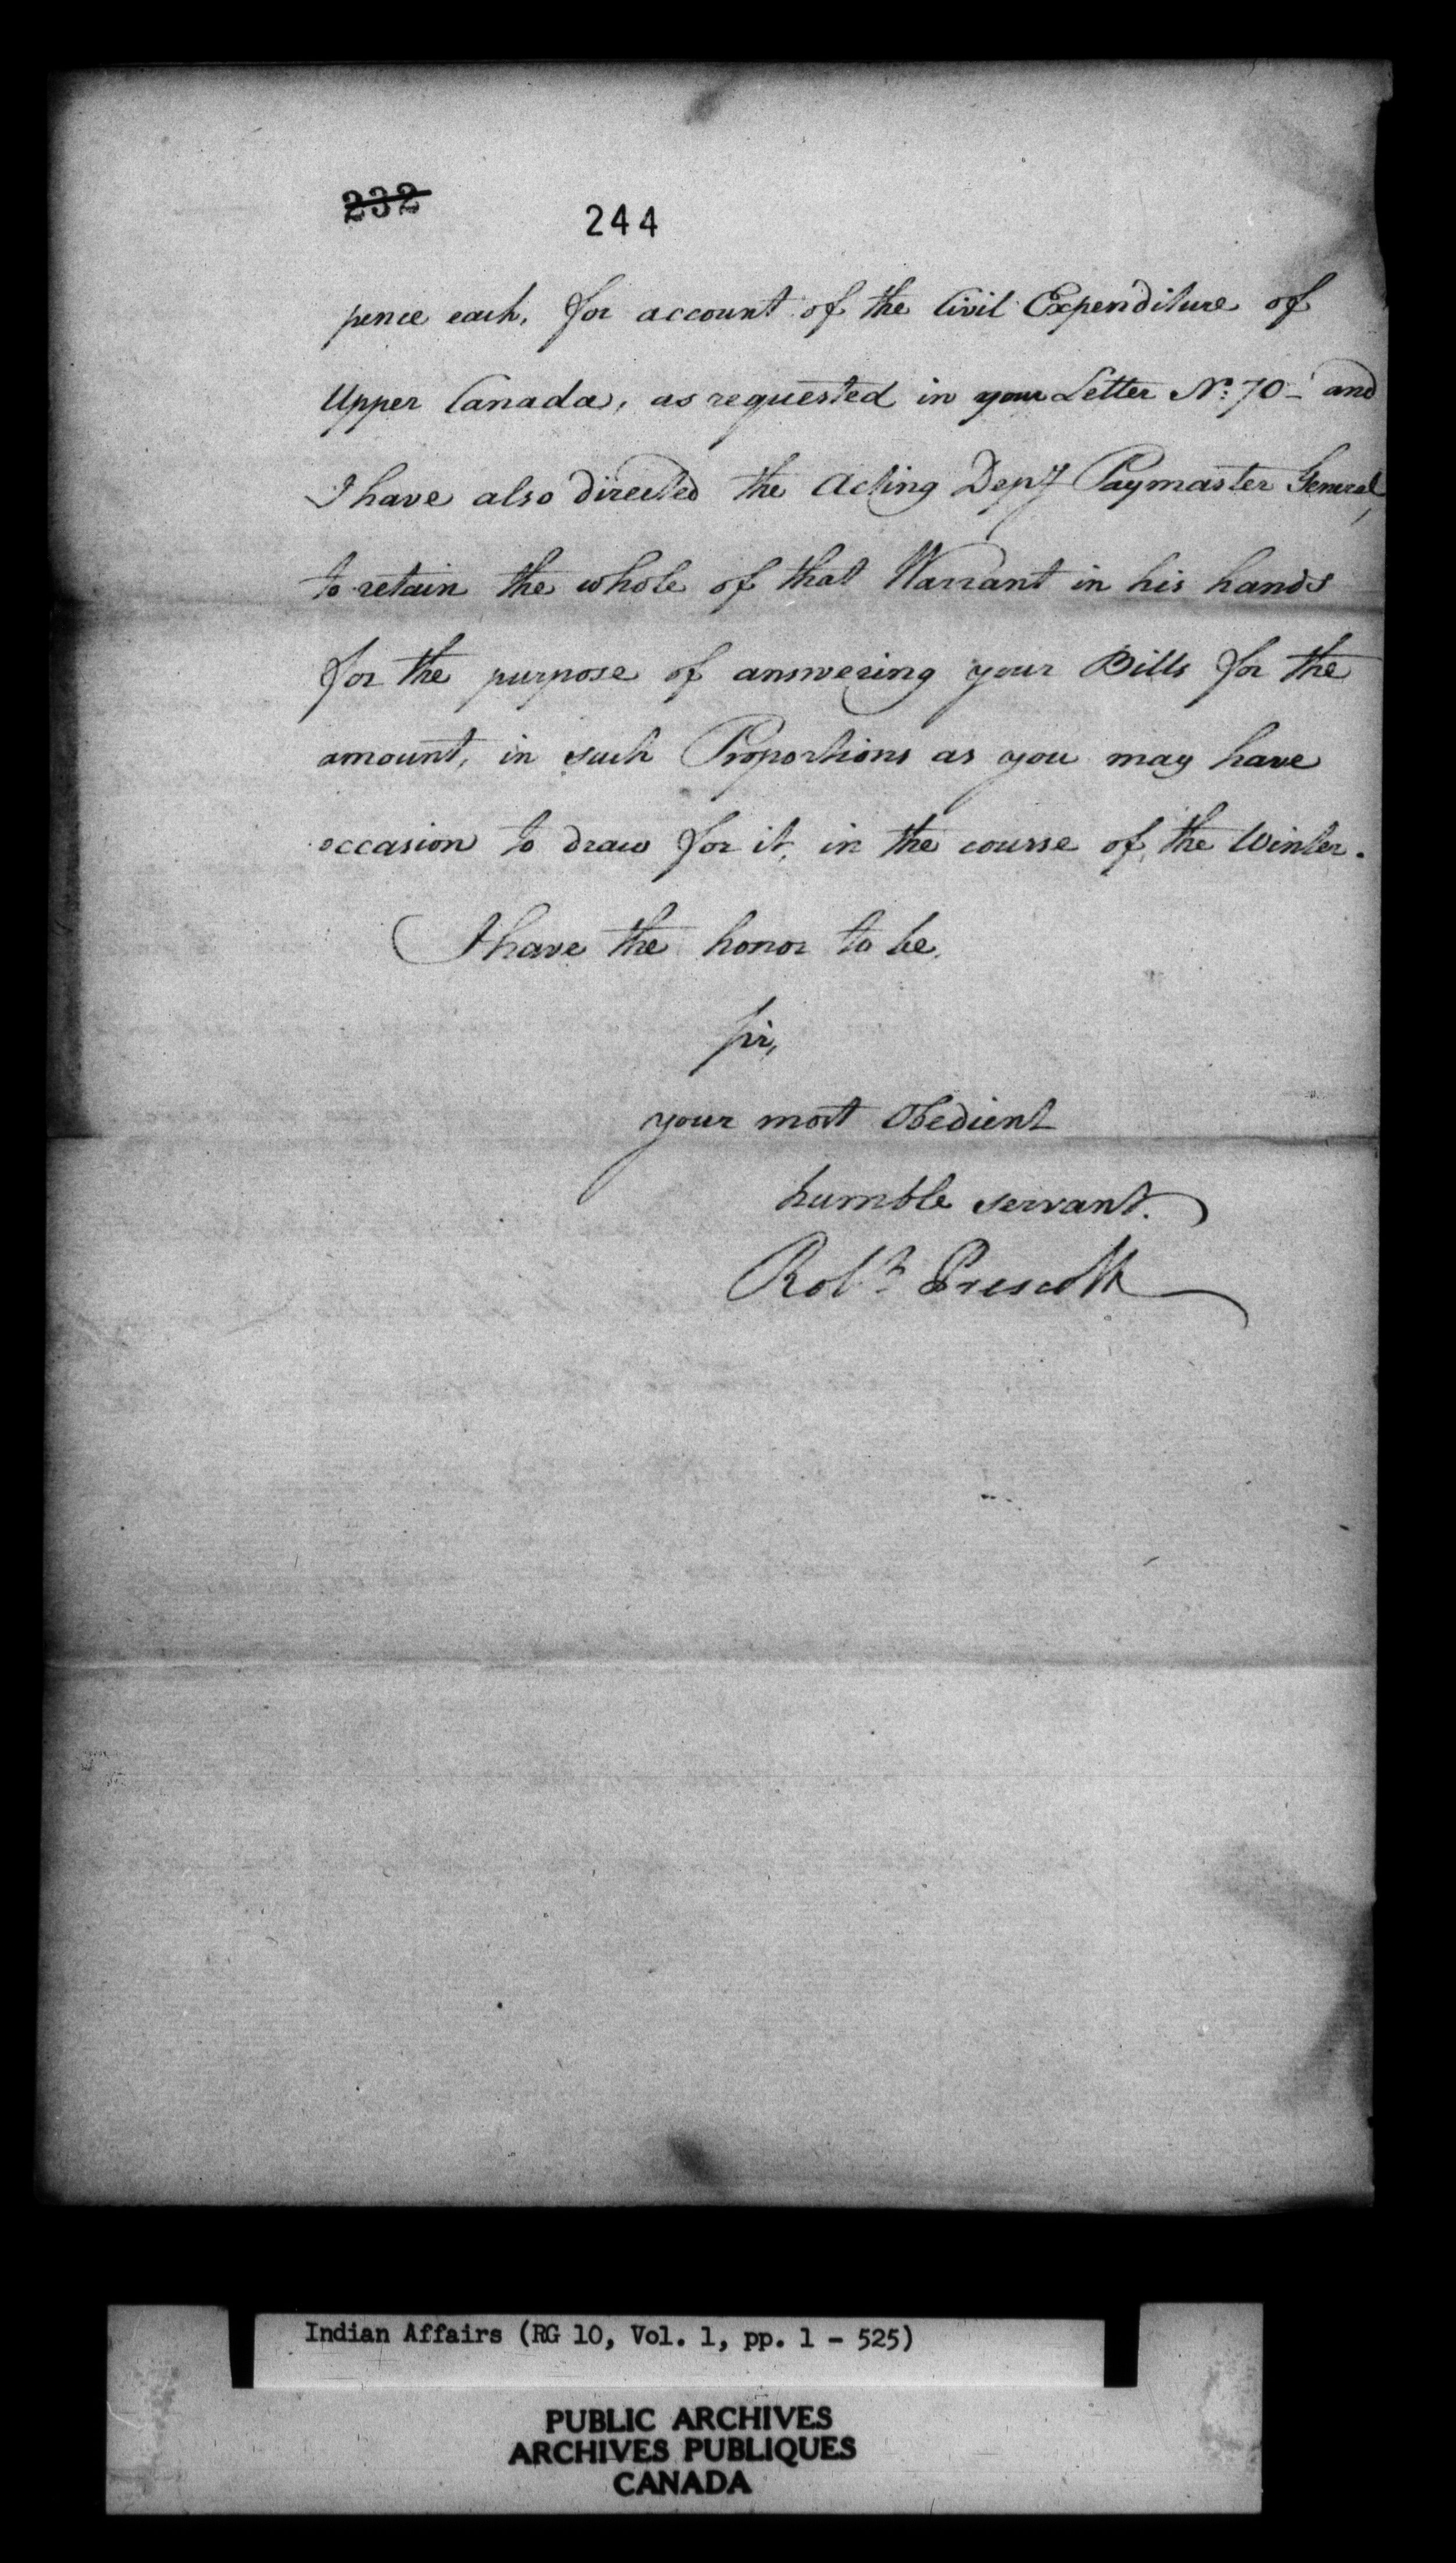 232
244
pence each, for account of the Civil Expenditure of
Upper Canada, as requested in your Letter No: 70 – and
I have also directed the Acting Depy Paymaster General,
to retain the whole of that Warrant in his hands
for the purpose of answering your Bills for the
amount, in such Proportions as you may have
occasion to draw for it, in the course of the Winter.
I have the honor to be,
Sir,
your most Obedient
humble servant.
Robt Prescott
Indian Affairs (RG 10, Vol. 1, pp. 1 - 525)
PUBLIC ARCHIVES
ARCHIVES PUBLIQUES
CANADA